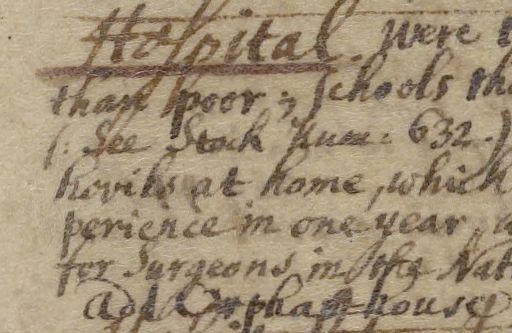 Hospital. Were t
than poor; Schools tho
(: See Stock Num: 632.)
at home, which
perience in one year, a
for Surgeons in the Nat
Add Orphan house